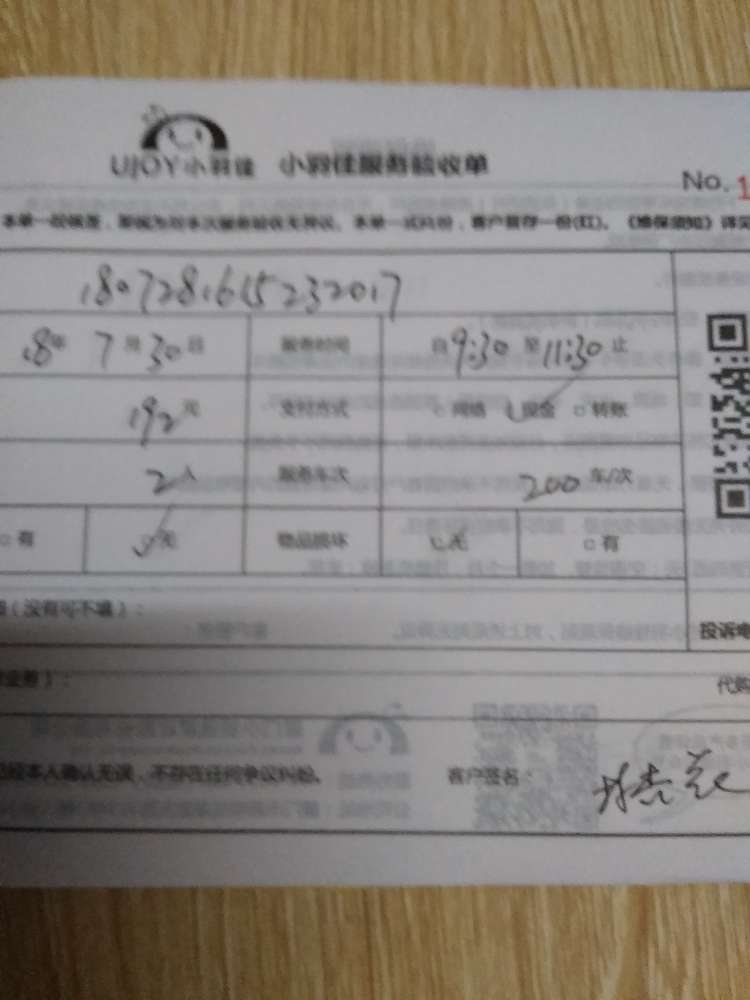 UJOY小羽佳 小羽佳服务验收单
No. 1
本单一经填写，即视为对本次服务验收无异议。本单一式两份，客户留存一份(红)。《维保须知》详见
1807281615232017
18年 7月30日 服务时间 自9:30至11:30止
192元 支付方式 网络 现金 转账
2人 服务车次 200车/次
有 无 物品损坏 无 有
(没有可不填)：
投诉电
代购
已经本人确认无误，不存在任何争议纠纷。 客户签名：